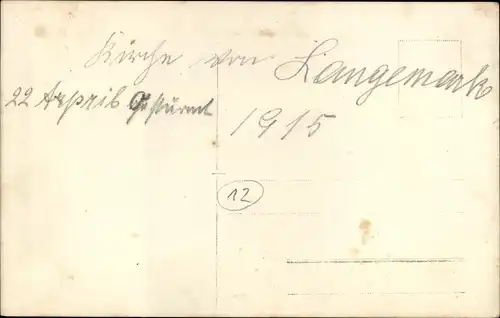 Kirche von Langemark
22 Arpril Gestürmt 1915
12